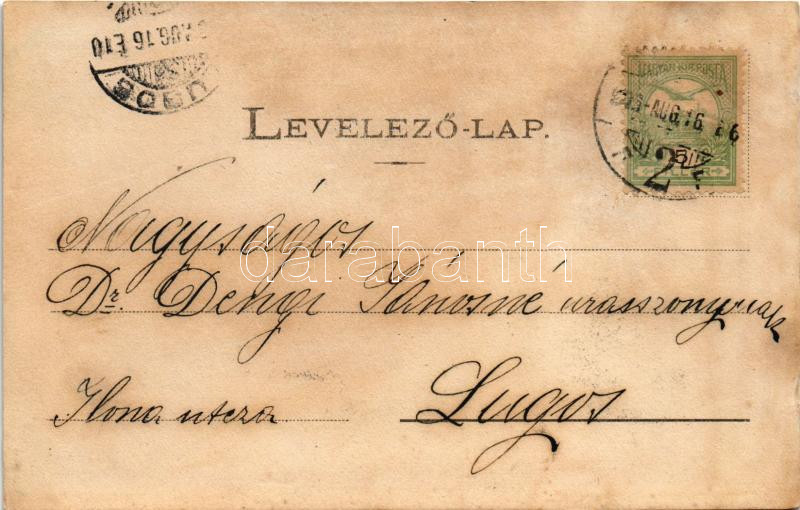 AUG.16 E10
LUGOS
MAGYAR KIR. POSTA
AUG.16
LEVELEZŐ-LAP.
Nagyságos
Dr. Dengi Jánosné urasszonynak
Ilona utcza
Lugos
darabanth